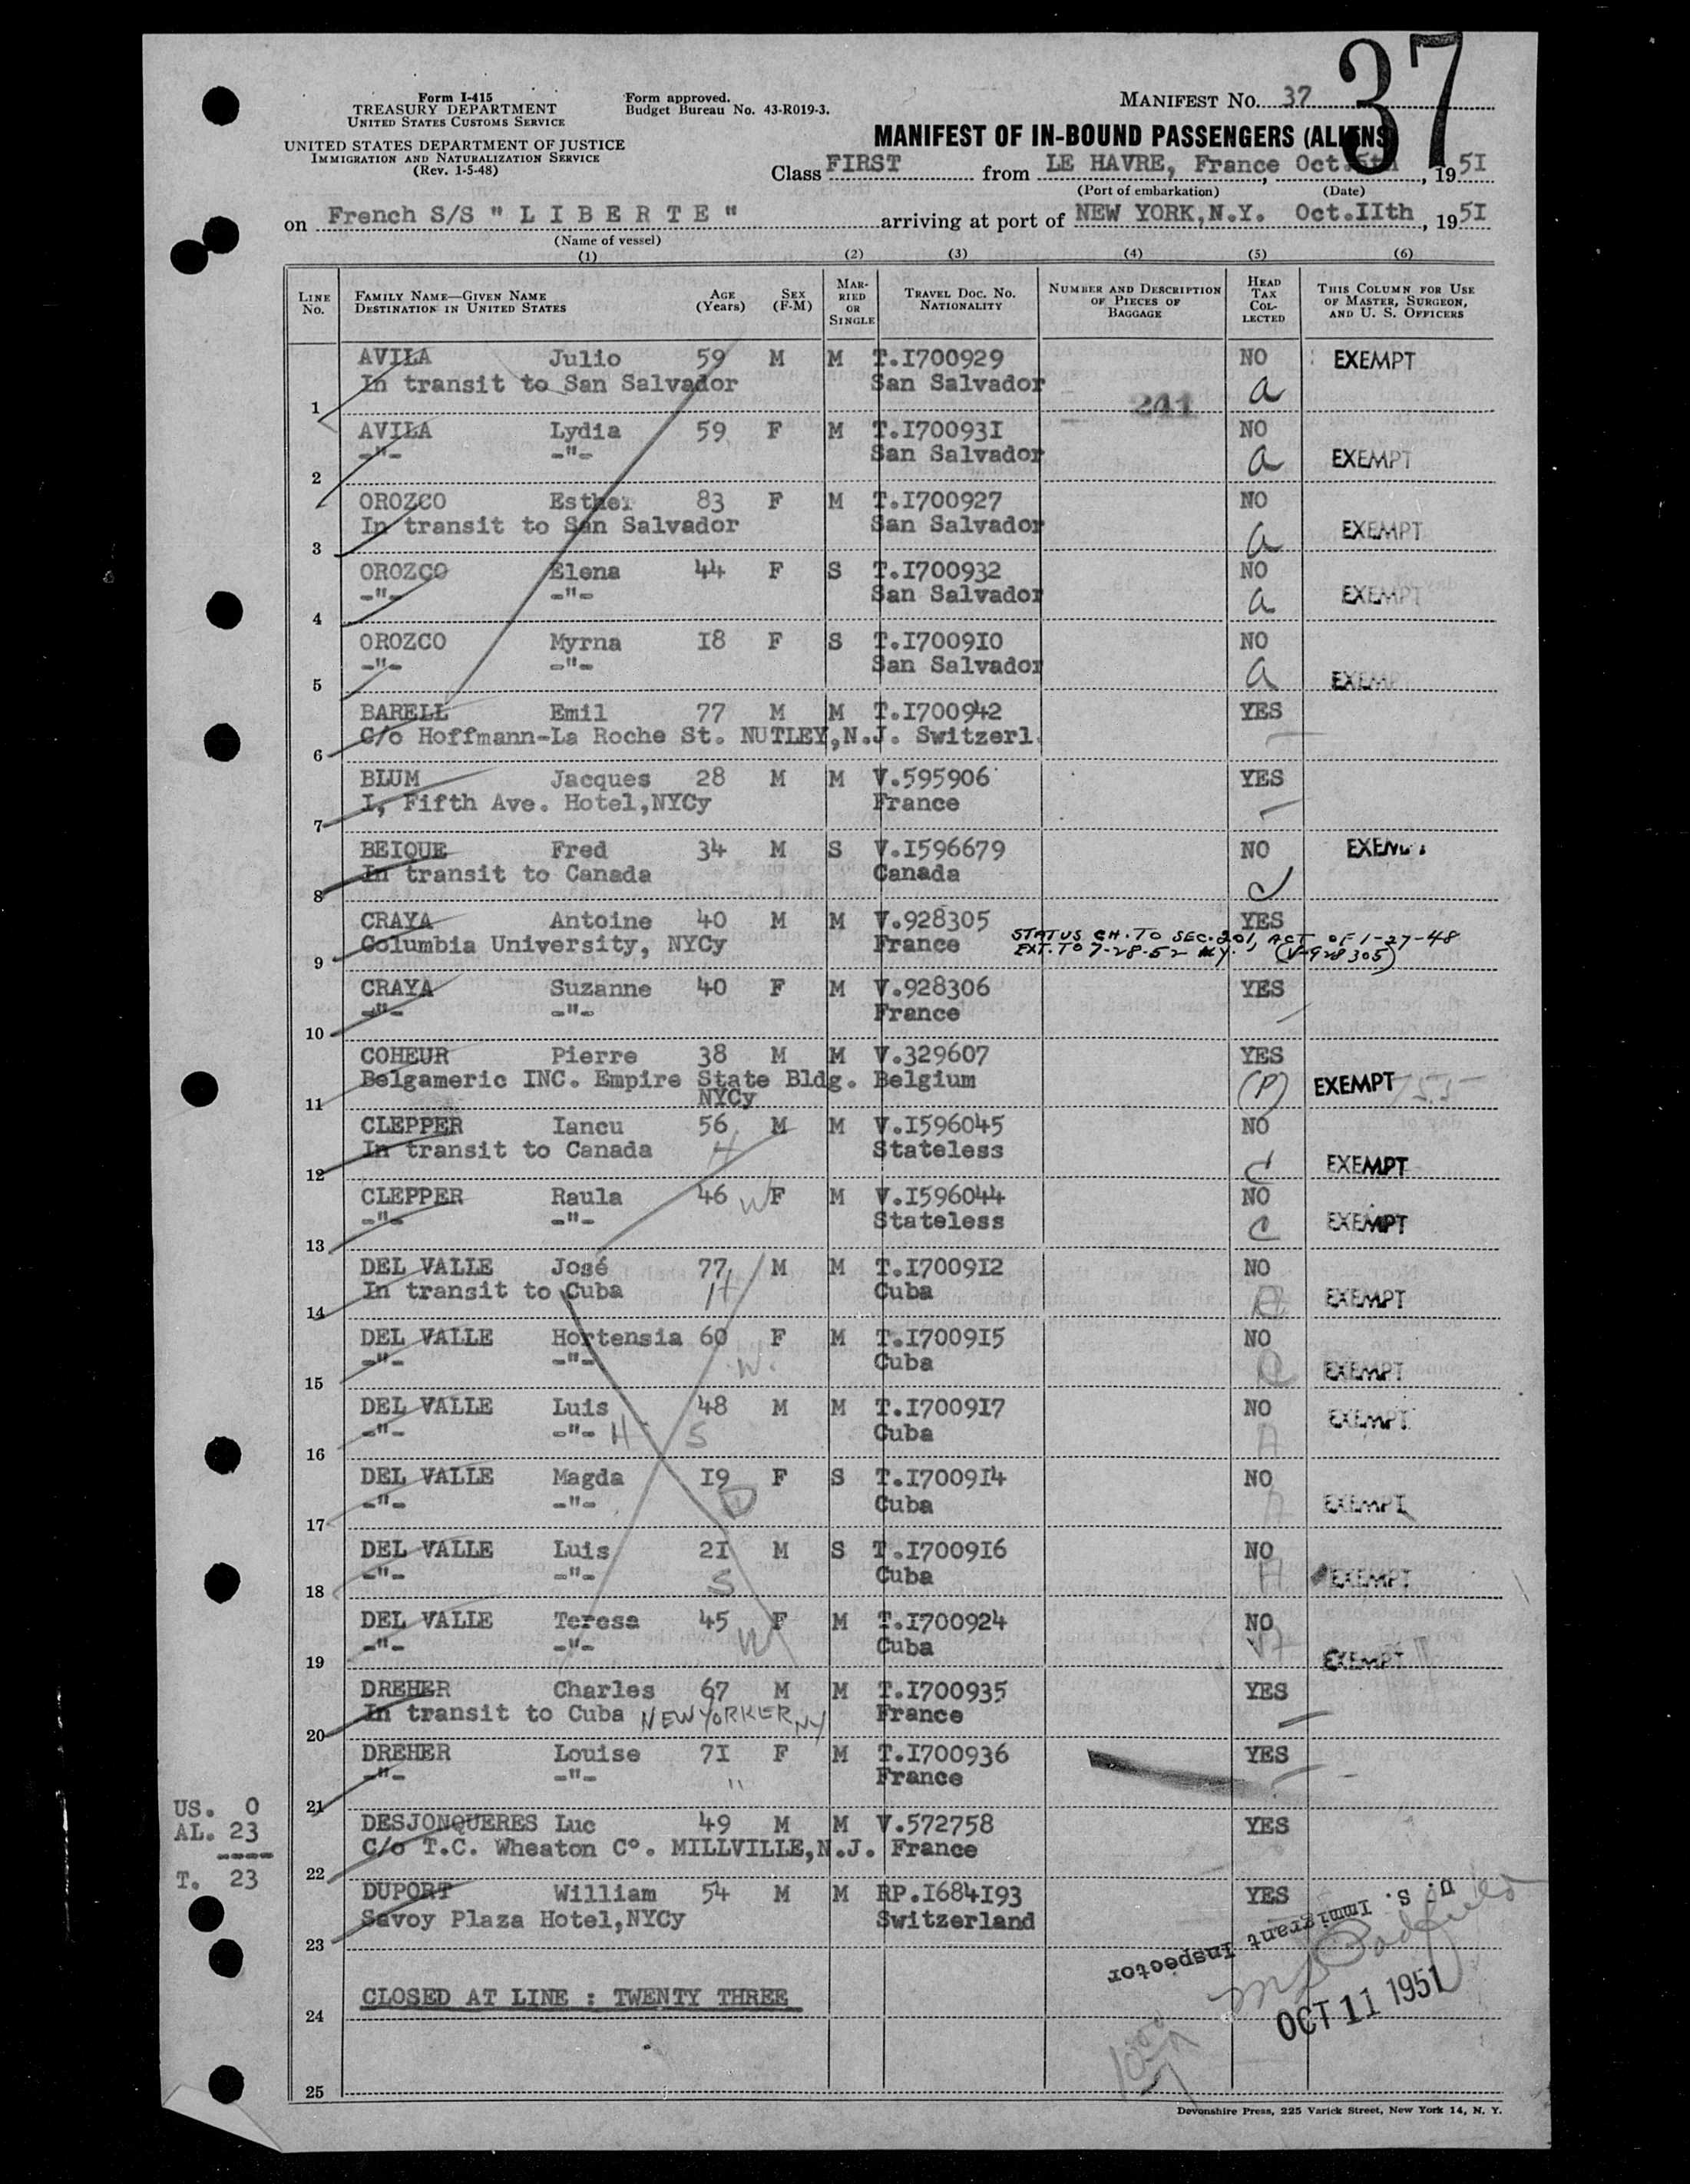 37
Form I-415
TREASURY DEPARTMENT
UNITED STATES CUSTOMS SERVICE
UNITED STATES DEPARTMENT OF JUSTICE
IMMIGRATION AND NATURALIZATION SERVICE
(Rev. 1-5-48)
Form approved.
Budget Bureau No. 43-R019-3.
MANIFEST NO. 37
MANIFEST OF IN-BOUND PASSENGERS (ALIENS)
Class FIRST from LE HAVRE, France, Oct. 5th, 195I
(Port of embarkation) (Date)
on French S/S " L I B E R T E " arriving at port of NEW YORK,N.Y. Oct.IIth, 195I
(Name of vessel)
(1) (2) (3) (4) (5) (6)
LINE No. FAMILY NAME—GIVEN NAME DESTINATION IN UNITED STATES AGE (Years) SEX (F-M) MARRIED OR SINGLE TRAVEL DOC. NO. NATIONALITY NUMBER AND DESCRIPTION OF PIECES OF BAGGAGE HEAD TAX COLLECTED THIS COLUMN FOR USE OF MASTER, SURGEON, AND U. S. OFFICERS
AVILA Julio 59 M M T.I700929 NO EXEMPT
1 In transit to San Salvador San Salvador a
241
AVILA Lydia 59 F M T.I70093I NO
2 -"- -"- San Salvador a EXEMPT
OROZCO Esther 83 F M T.I700927 NO
3 In transit to San Salvador San Salvador a EXEMPT
OROZCO Elena 44 F S T.I700932 NO
4 -"- -"- San Salvador a EXEMPT
OROZCO Myrna I8 F S T.I7009I0 NO
5 -"- -"- San Salvador a EXEMPT
BARELL Emil 77 M M T.I700942 YES
6 C/o Hoffmann-La Roche St. NUTLEY,N.J. Switzerl.
BLUM Jacques 28 M M V.595906 YES
7 I, Fifth Ave. Hotel,NYCy France
BEIQUE Fred 34 M S V.I596679 NO EXEMPT
8 In transit to Canada Canada C
CRAYA Antoine 40 M M V.928305 YES
9 Columbia University, NYCy France STATUS CH. TO SEC. 201, ACT OF 1-27-48
EXT. TO 7-28-52 N.Y. (V-928305)
CRAYA Suzanne 40 F M V.928306 YES
10 -"- -"- France
COHEUR Pierre 38 M M V.329607 YES
11 Belgameric INC. Empire State Bldg. Belgium (P) EXEMPT
NYCy
CLEPPER Iancu 56 M M V.I596045 NO
12 In transit to Canada H Stateless C EXEMPT
CLEPPER Raula 46 W F M V.I596044 NO
13 -"- -"- Stateless C EXEMPT
DEL VALLE José 77 M M T.I7009I2 NO
14 In transit to Cuba H Cuba EXEMPT
DEL VALLE Hortensia 60 F M T.I7009I5 NO
15 -"- -"- W. Cuba EXEMPT
DEL VALLE Luis 48 M M T.I7009I7 NO
16 -"- -"- H S Cuba A EXEMPT
DEL VALLE Magda I9 F S T.I7009I4 NO
17 -"- -"- D Cuba A EXEMPT
DEL VALLE Luis 2I M S T.I7009I6 NO
18 -"- -"- S Cuba A EXEMPT
DEL VALLE Teresa 45 F M T.I700924 NO
19 -"- -"- W Cuba A EXEMPT
DREHER Charles 67 M M T.I700935 YES
20 In transit to Cuba NEW YORKER NY France
DREHER Louise 7I F M T.I700936 YES
21 -"- -"- " France
DESJONQUERES Luc 49 M M V.572758 YES
22 C/o T.C. Wheaton C°. MILLVILLE,N.J. France
DUPORT William 54 M M RP.I684I93 YES
23 Savoy Plaza Hotel,NYCy Switzerland
US. 0
AL. 23
----
T. 23
U. S. Immigrant Inspector
OCT 11 1951
24 CLOSED AT LINE : TWENTY THREE
25
Devonshire Press, 225 Varick Street, New York 14, N. Y.